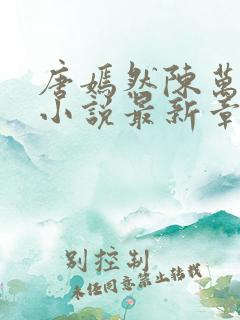 唐嫣然陳萬
小説最新章
别控制
未经同意禁止转载